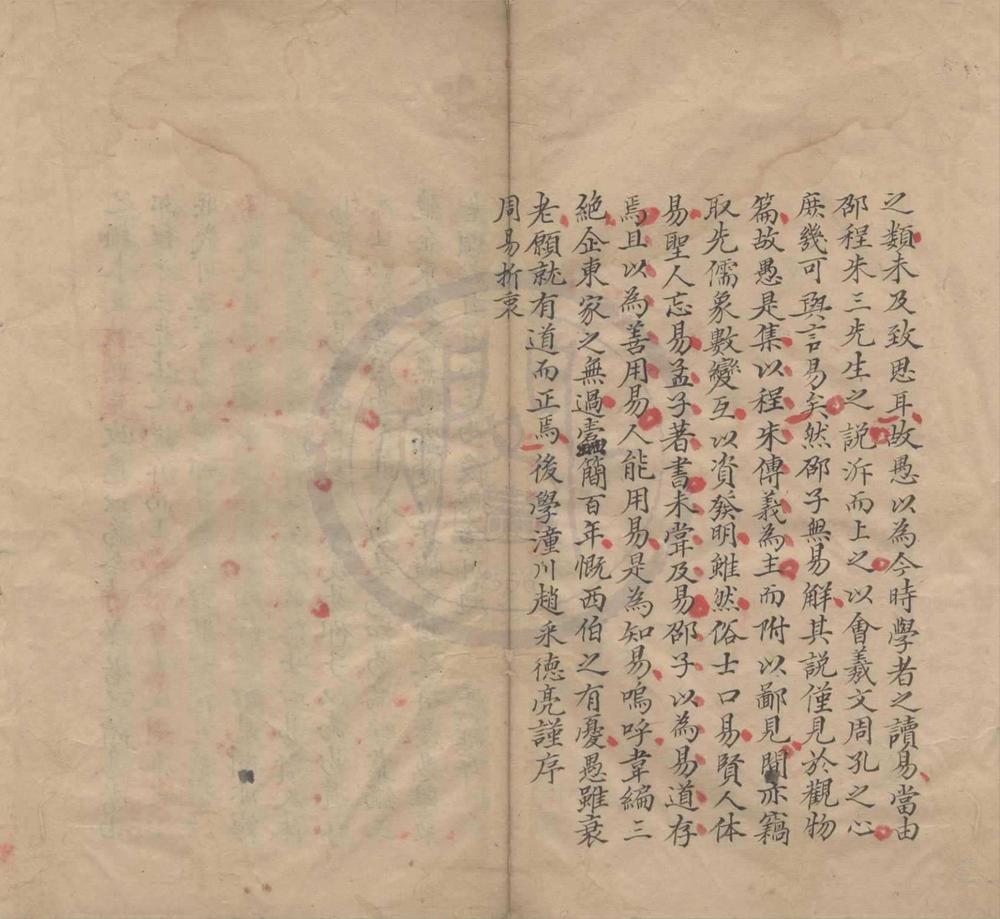 之類未及致思耳故愚以為今時學者之讀易當由
邵程朱三先生之説泝而上之以會羲文周孔之心
庶幾可與言易矣然邵子無易解其説僅見於觀物
篇故愚是集以程朱傳義為主而附以鄙見間亦竊
取先儒象數變互以資發明雖然俗士口易賢人体
易聖人忘易孟子著書未甞及易邵子以為易道存
焉且以為善用易人能用易是為知易嗚呼韋編三
絶企東家之無過蠹簡百年慨西伯之有憂愚雖衰
老願就有道而正焉後學潼川趙采徳亮謹序
周易折衷